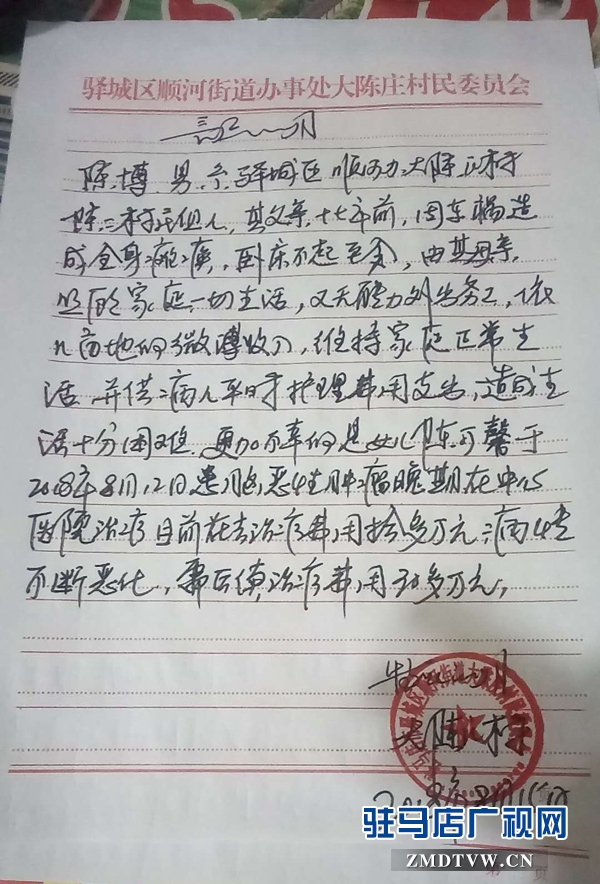 驿城区顺河街道办事处大陈庄村民委员会
证明
陈博 男 系驿城区顺河办大陈庄村
陈三村民组人，其父亲，十七年前，因车祸造
成全身瘫痪，卧床不起至今，由其母亲
照顾家庭一切生活，又无能力外出务工，依
几亩地的微薄收入，维持家庭正常生
活，并供病人平时护理费用支出，造成生
活十分困难，更加不幸的是女儿陈可馨于
2018年8月12日患恶性肿瘤晚期在中心
医院治疗目前花去治疗费用拾多万元，病情
不断恶化，需后续治疗费用30多万元，
特此证明
陈村
2018年 月15日
驻马店广视网
ZMDTVW.CN
第 页